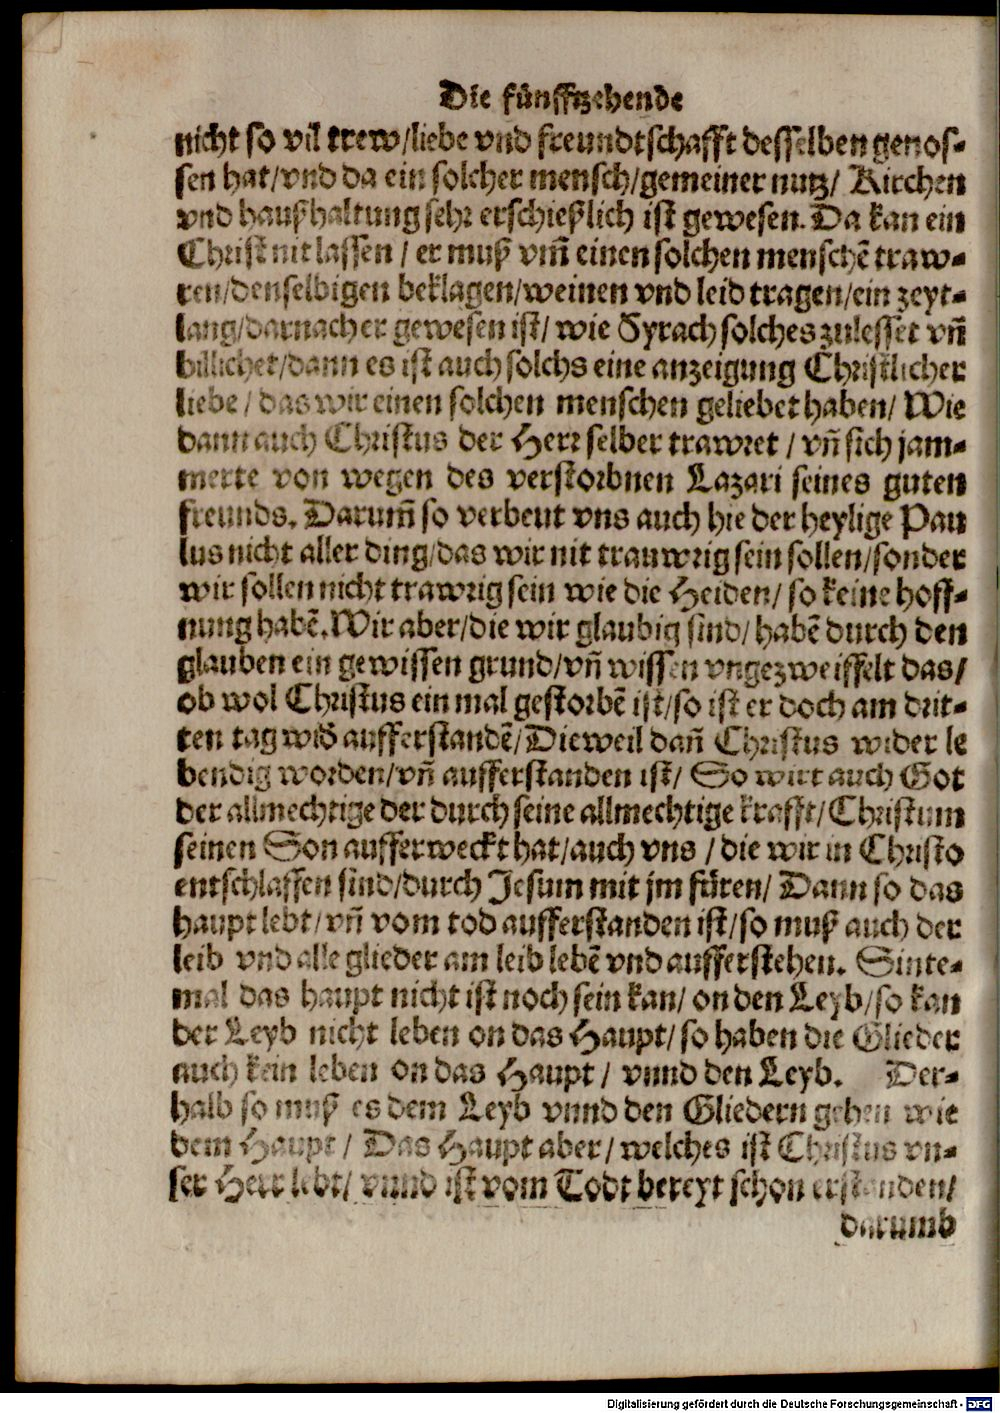 Die fünfftzehende
nicht so vil trew/liebe vnd freundtschafft desselben genos-
sen hat/vnd da ein solcher mensch/gemeiner nutz/ Kirchen
vnd haußhaltung sehr erschießlich ist gewesen. Da kan ein
Christ nit lassen / er muß vm̃ einen solchen menschẽ traw-
ren/denselbigen beklagen/weinen vnd leid tragen/ein zeyt-
lang/darnach er gewesen ist/ wie Syrach solches zulesset vñ
billichet/dann es ist auch solchs eine anzeigung Christlicher
liebe / das wir einen solchen menschen geliebet haben/ Wie
dann auch Christus der Herr selber trawret / vñ sich jam-
merte von wegen des verstorbnen Lazari seines guten
freunds. Darum̃ so verbeut vns auch hie der heylige Pau
lus nicht aller ding/das wir nit trauwrig sein sollen/sonder
wir sollen nicht trawrig sein wie die Heiden/ so keine hoff-
nung habẽ. Wir aber/die wir glaubig sind/ habẽ durch den
glauben ein gewissen grund/vñ wissen vngezweiffelt das/
ob wol Christus ein mal gestorbẽ ist/so ist er doch am drit-
ten tag wid̃ aufferstandẽ/Dieweil dañ Christus wider le
bendig worden/vñ aufferstanden ist/ So wirt auch Got
der allmechtige der durch seine allmechtige krafft/Christum
seinen Son aufferweckt hat/auch vns / die wir in Christo
entschlaffen sind/durch Jesum mit jm füren/ Dann so das
haupt lebt/vñ vom tod aufferstanden ist/so muß auch der
leib vnd alle glieder am leib lebẽ vnd aufferstehen. Sinte-
mal das haupt nicht ist noch sein kan/ on den Leyb/so kan
der Leyb nicht leben on das Haupt/ so haben die Glieder
auch kein leben on das Haupt / vnnd den Leyb. Der-
halb so muß es dem Leyb vnnd den Gliedern gehen wie
dem Haupt / Das Haupt aber/ welches ist Christus vn-
ser Herr lebt/ vnnd ist vom Todt bereyt schon erstanden/
darumb
Digitalisierung gefördert durch die Deutsche Forschungsgemeinschaft - DFG